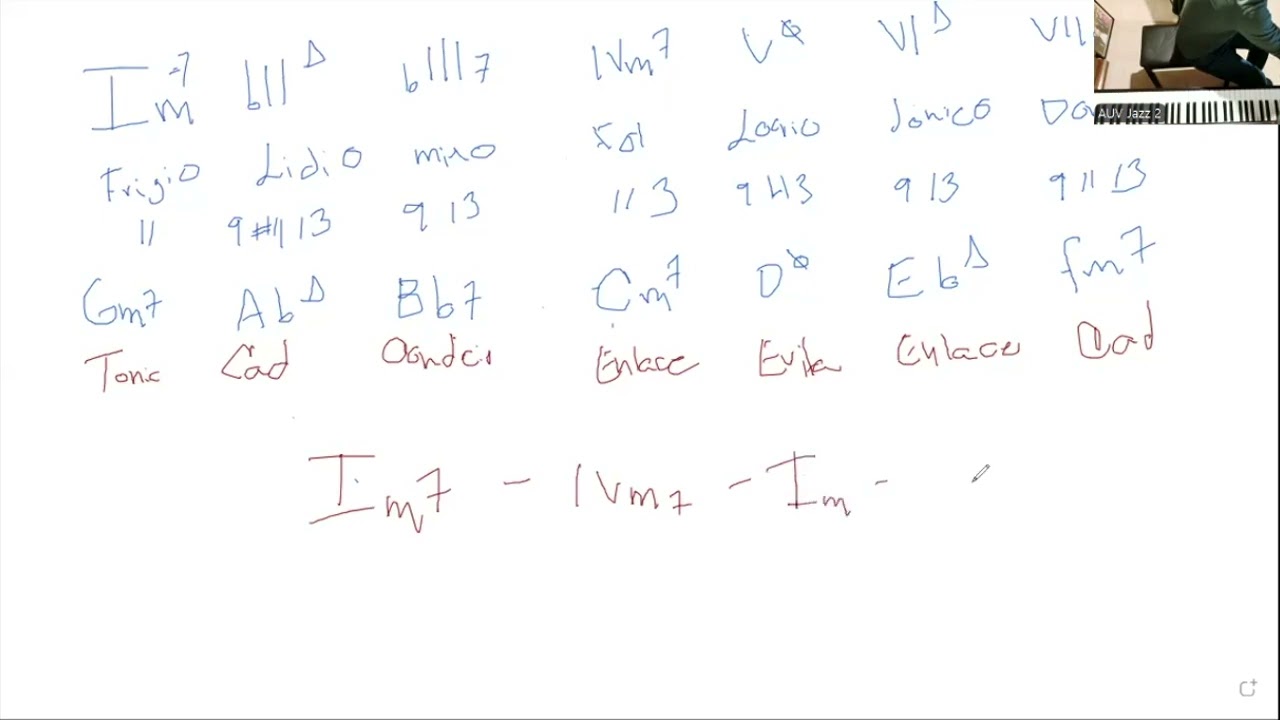 Im-7 bIIΔ bIII7 IVm7 Vø VIΔ VII
Frigio Lidio mixo Eol Locrio Jonico Do
11 9 #11 13 9 13 11 9 b13 9 13 9 11 13
Gm7 AbΔ Bb7 Cm7 Dø EbΔ fm7
Tonic Cad Enlace Evita Enlace Cad
Im7 - IVm7 - Im -
AUV Jazz 2